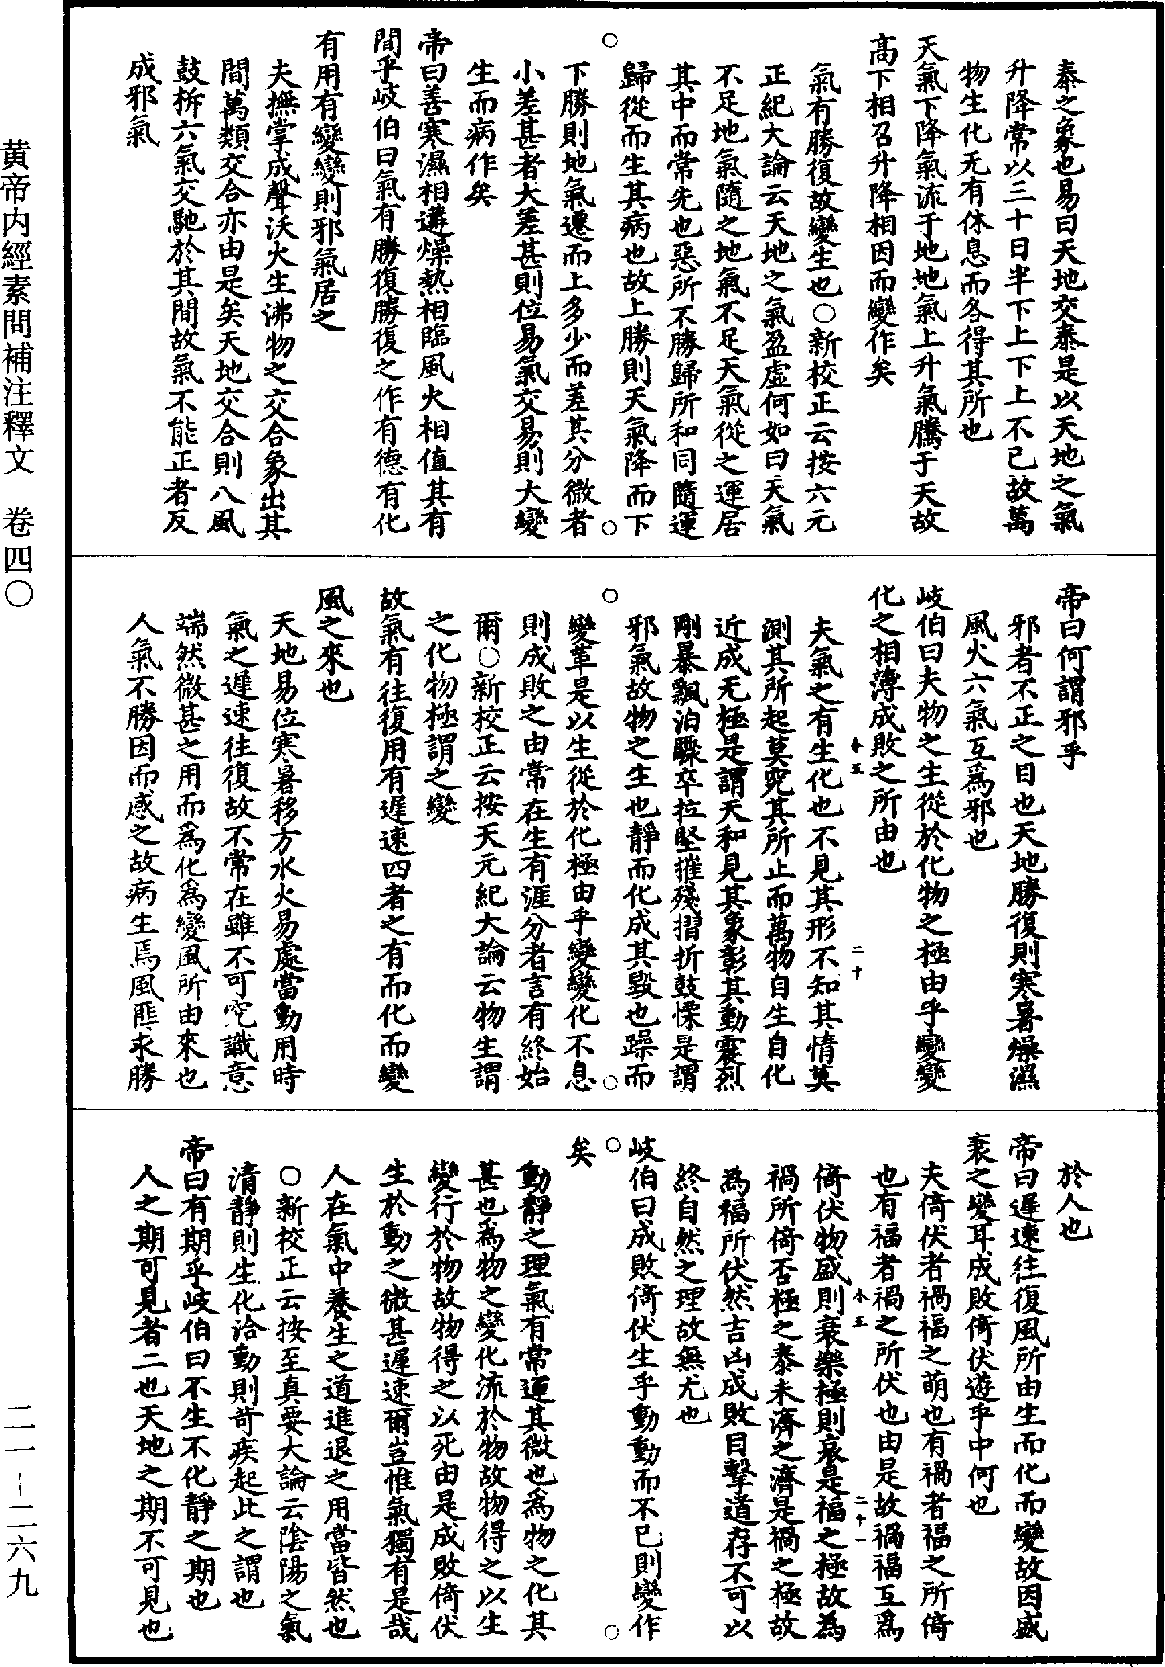 泰之象也易曰天地交泰是以天地之氣
升降常以三十日半下上下上不已故萬
物生化无有休息而各得其所也
天氣下降氣流于地地氣上升氣騰于天故
高下相召升降相因而變作矣
氣有勝復故變生也○新校正云按六元
正紀大論云天地之氣盈虛何如曰天氣
不足地氣隨之地氣不足天氣從之運居
其中而常先也惡所不勝歸所和同隨運
歸從而生其病也故上勝則天氣降而下
下勝則地氣遷而上多少而差其分微者
小差甚者大差甚則位易氣交易則大變
生而病作矣
帝曰善寒濕相遘燥熱相臨風火相值其有
間乎岐伯曰氣有勝復勝復之作有德有化
有用有變變則邪氣居之
夫撫掌成聲沃火生沸物之交合象出其
間萬類交合亦由是矣天地交合則八風
鼓柝六氣交馳於其間故氣不能正者反
成邪氣
帝曰何謂邪乎
邪者不正之目也天地勝復則寒暑燥濕
風火六氣互爲邪也
岐伯曰夫物之生從於化物之極由乎變變
化之相薄成敗之所由也
夫氣之有生化也不見其形不知其情莫
測其所起莫究其所止而萬物自生自化
近成无極是謂天和見其象彰其動震烈
剛暴飄泊驟卒拉堅摧殘摺折鼓慄是謂
邪氣故物之生也靜而化成其毀也躁而
變革是以生從於化極由乎變變化不息
則成敗之由常在生有涯分者言有終始
爾○新校正云按天元紀大論云物生謂
之化物極謂之變
故氣有往復用有遲速四者之有而化而變
風之來也
天地易位寒暑移方水火易處當動用時
氣之遲速往復故不常在雖不可究識意
端然微甚之用而爲化爲變風所由來也
人氣不勝因而感之故病生焉風匪求勝
於人也
帝曰遲速往復風所由生而化而變故因盛
衰之變耳成敗倚伏遊乎中何也
夫倚伏者禍福之萌也有禍者福之所倚
也有福者禍之所伏也由是故禍福互爲
倚伏物盛則衰樂極則哀是福之極故爲
禍所倚否極之泰未濟之濟是禍之極故
爲福所伏然吉凶成敗目擊道存不可以
終自然之理故無尤也
岐伯曰成敗倚伏生乎動動而不已則變作
矣
動靜之理氣有常運其微也爲物之化其
甚也爲物之變化流於物故物得之以生
變行於物故物得之以死由是成敗倚伏
生於動之微甚遲速爾豈惟氣獨有是哉
人在氣中養生之道進退之用當皆然也
○新校正云按至真要大論云陰陽之氣
清靜則生化治動則苛疾起此之謂也
帝曰有期乎岐伯曰不生不化靜之期也
人之期可見者二也天地之期不可見也
夲五
二十
夲五
二十一
黃帝內經素問補注釋文　卷四〇
二一－二六九